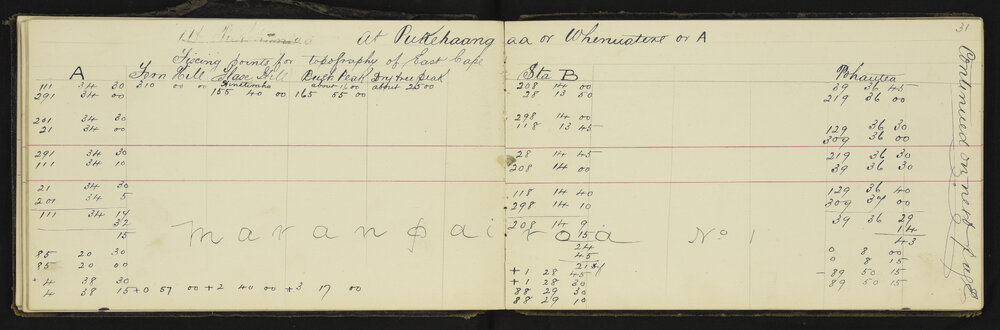 31
At Pukehaangaa or Whenuatere or A
Fixing points for topography of East Cape
A Fern Hill Hill Bush Peak Dry tree peak Sta B Pohautea
111 34 30 310 00 00 about 1600 about 2500 208 14 00 39 36 45
291 34 00 155 40 00 165 55 00 28 13 50 219 36 00
201 34 30 298 14 00
21 34 00 118 13 45 129 36 30
309 36 00
291 34 30 28 14 45 219 36 30
111 34 10 208 14 00 39 36 30
21 34 30 118 14 40 129 36 40
201 34 5 298 14 10 309 37 00
111 34 17 208 14 9 39 36 29
32 15 14
15 24 43
45
No 1
85 20 30 0 8 00
85 20 00 +1 28 45 0 8 15
+4 38 30 +1 28 30 -89 50 15
4 38 15 +0 57 00 +2 40 00 +3 17 00 88 29 30 89 50 15
88 29 10
Continued on next page